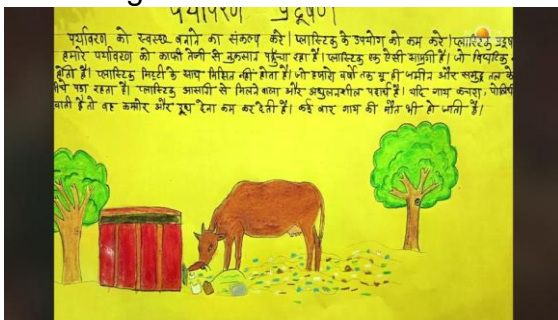 पर्यावरण प्रदूषण
पर्यावरण को स्वस्थ बनाने का संकल्प करे। प्लास्टिक के उपयोग को कम करे। प्लास्टिक प्रदूष
हमारे पर्यावरण को काफी तेजी से नुकसान पहुँचा रहा है। प्लास्टिक एक ऐसी सामग्री है। जो
होती है। प्लास्टिक मिट्टी के साथ मिश्रित नहीं होता है। जो हजारो वर्षो तक यू ही जमीन और समुद्र तल के
नीचे पड़ा रहता है। प्लास्टिक आसानी से मिलने वाला और अघुलनशील पदार्थ है। यदि गाय कचरा,
खाती है तो वह कमजोर और दूध देना कम कर देती है। कई बार गाय की मौत भी हो जाती है।